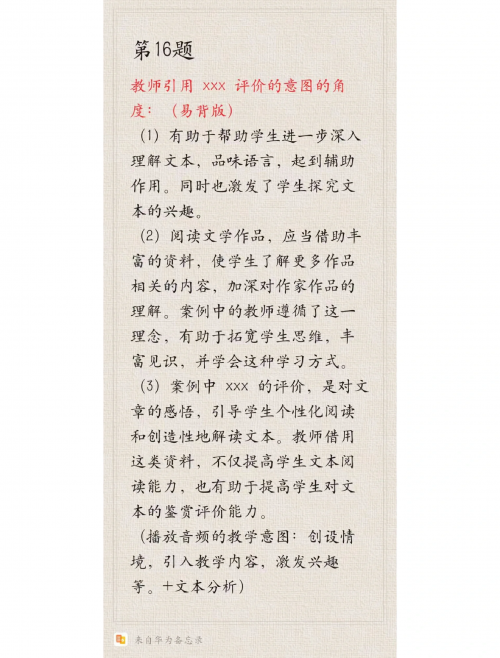 第16题
教师引用 xxx 评价的意图的角
度：（易背版）
（1）有助于帮助学生进一步深入
理解文本，品味语言，起到辅助
作用。同时也激发了学生探究文
本的兴趣。
（2）阅读文学作品，应当借助丰
富的资料，使学生了解更多作品
相关的内容，加深对作家作品的
理解。案例中的教师遵循了这一
理念，有助于拓宽学生思维，丰
富见识，并学会这种学习方式。
（3）案例中 xxx 的评价，是对文
章的感悟，引导学生个性化阅读
和创造性地解读文本。教师借用
这类资料，不仅提高学生文本阅
读能力，也有助于提高学生对文
本的鉴赏评价能力。
（播放音频的教学意图：创设情
境，引入教学内容，激发兴趣
等。+文本分析）
来自华为备忘录